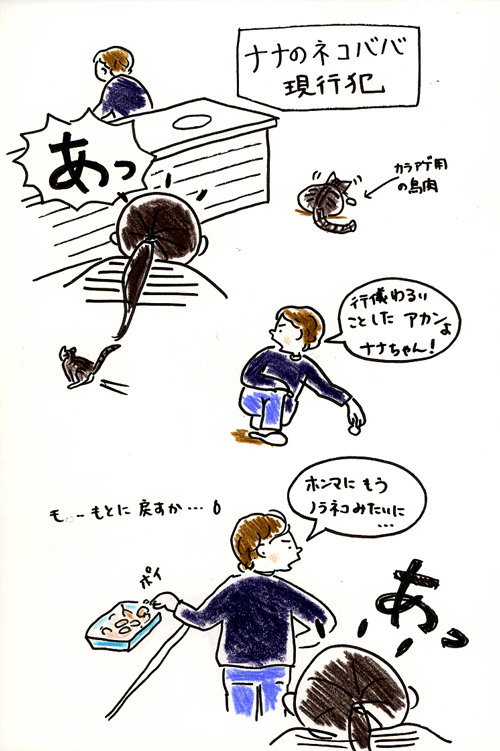 ナナのネコババ
現行犯
あっ
カラアゲ用
の鳥肉
行儀わるい
ことした アカンよ
ナナちゃん!
ホンマに もう
ノラネコみたいに
…
も…もとに 戻すか…
ポイ
あっ